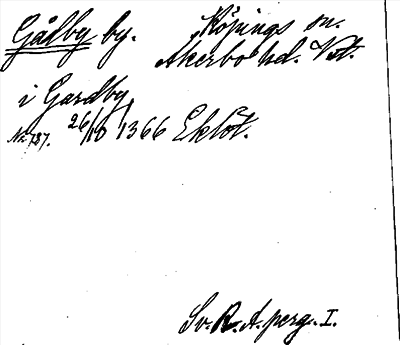 Gålby by. Köpings sn.
Åkerbo hd. Vstm.
i Gardby
Nr 787. 26/10 1366 Eklöt.
Sv. R. A. perg. I.